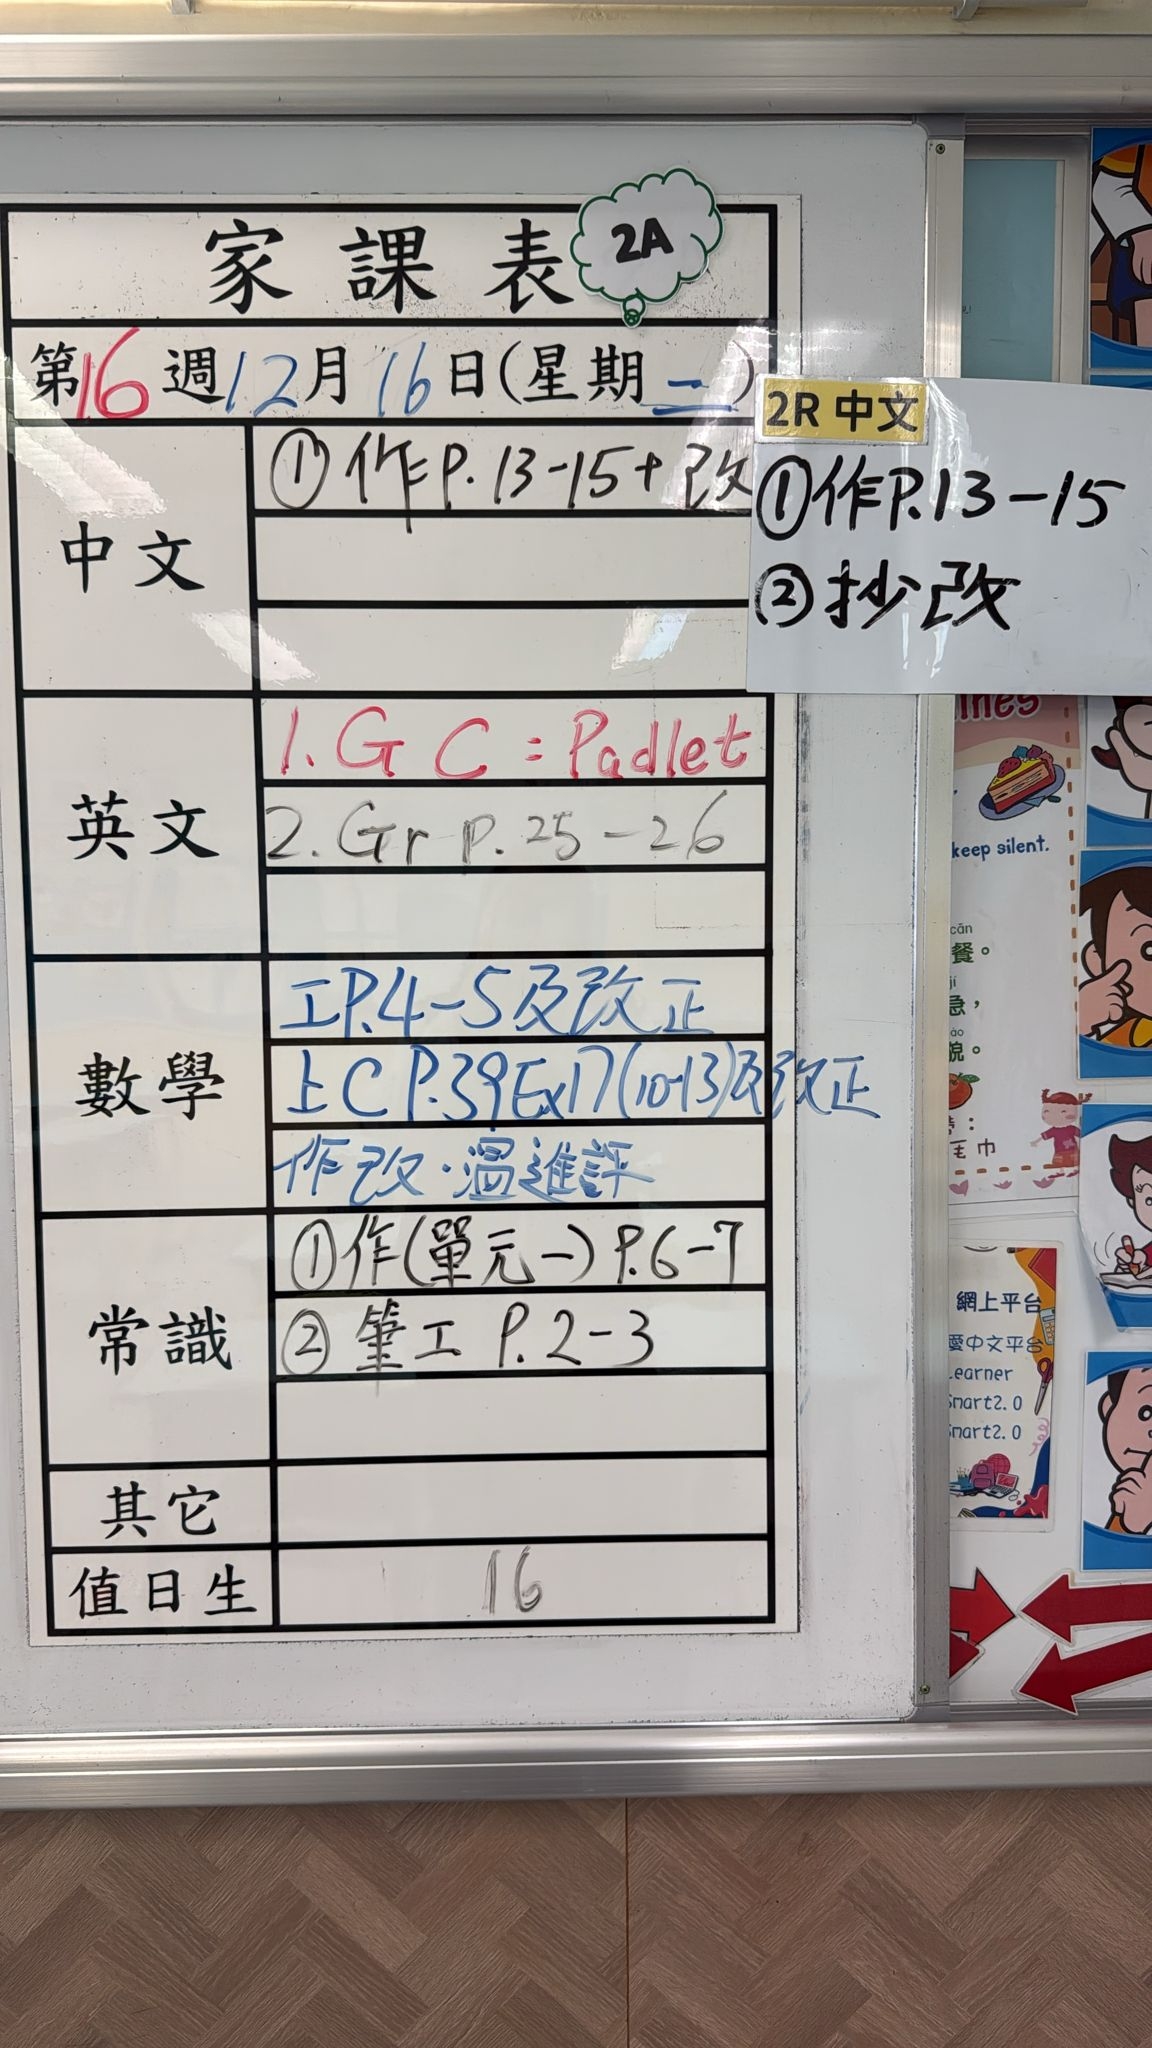 家課表
2A
第16週12月16日(星期一)
中文
①作P.13-15+改
2R 中文
①作P.13-15
②抄改
英文
1.GC=Padlet
2.Gr p.25-26
數學
工P.4-5及改正
上C P.39Ex17(10-13)及改正
作改·溫進評
常識
①作(單元一)P.6-7
②筆工 P.2-3
其它
值日生
16
ines
keep silent.
cān
餐。
急，
貌。
毛巾
網上平台
愛中文平台
Learner
Smart2.0
Smart2.0